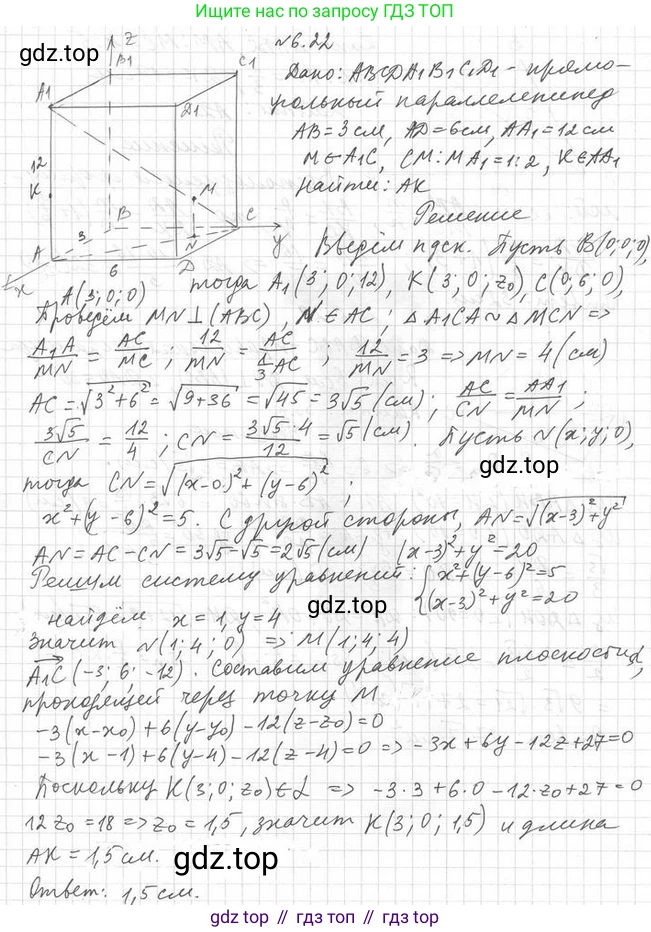 Ищите нас по запросу ГДЗ ТОП
gdz.top
№6.22
Дано: ABCDA1B1C1D1 - прямо-
угольный параллелепипед
AB=3см, AD=6см, AA1=12см
M∈A1C, CM:MA1=1:2, K∈AA1
Найти: AK
Решение
z
B1
C1
A1
D1
12
K
M
B
C
y
3
N
A
6
D
x
A(3;0;0)
Введём пдск. Пусть B(0;0;0),
тогда A1(3;0;12), K(3;0;z0), C(0;6;0),
Проведём MN⊥(ABC), N∈AC; △A1CA~△MCN =>
A1A/MN = AC/MC; 12/MN = AC/(1/3 AC); 12/MN = 3 => MN = 4(см)
AC = √(3²+6²) = √(9+36) = √45 = 3√5(см); AC/CN = AA1/MN;
3√5/CN = 12/4; CN = (3√5·4)/12 = √5(см). Пусть N(x;y;0),
gdz.top
тогда CN = √((x-0)²+(y-6)²);
x²+(y-6)²=5. С другой стороны, AN=√((x-3)²+y²)
AN = AC-CN = 3√5-√5=2√5(см) (x-3)²+y²=20
Решим систему уравнений: {x²+(y-6)²=5
{(x-3)²+y²=20
gdz.top
найдём x=1, y=4
Значит N(1;4;0) => M(1;4;4)
A1C(-3;6;-12). Составим уравнение плоскости α,
проходящей через точку M
-3(x-x0)+6(y-y0)-12(z-z0)=0
-3(x-1)+6(y-4)-12(z-4)=0 => -3x+6y-12z+27=0
Поскольку K(3;0;z0)∈α => -3·3+6·0-12·z0+27=0
12z0=18 => z0=1,5, значит K(3;0;1,5) и длина
AK=1,5см.
gdz.top
Ответ: 1,5см.
gdz.top // гдз.top // гдз.топ